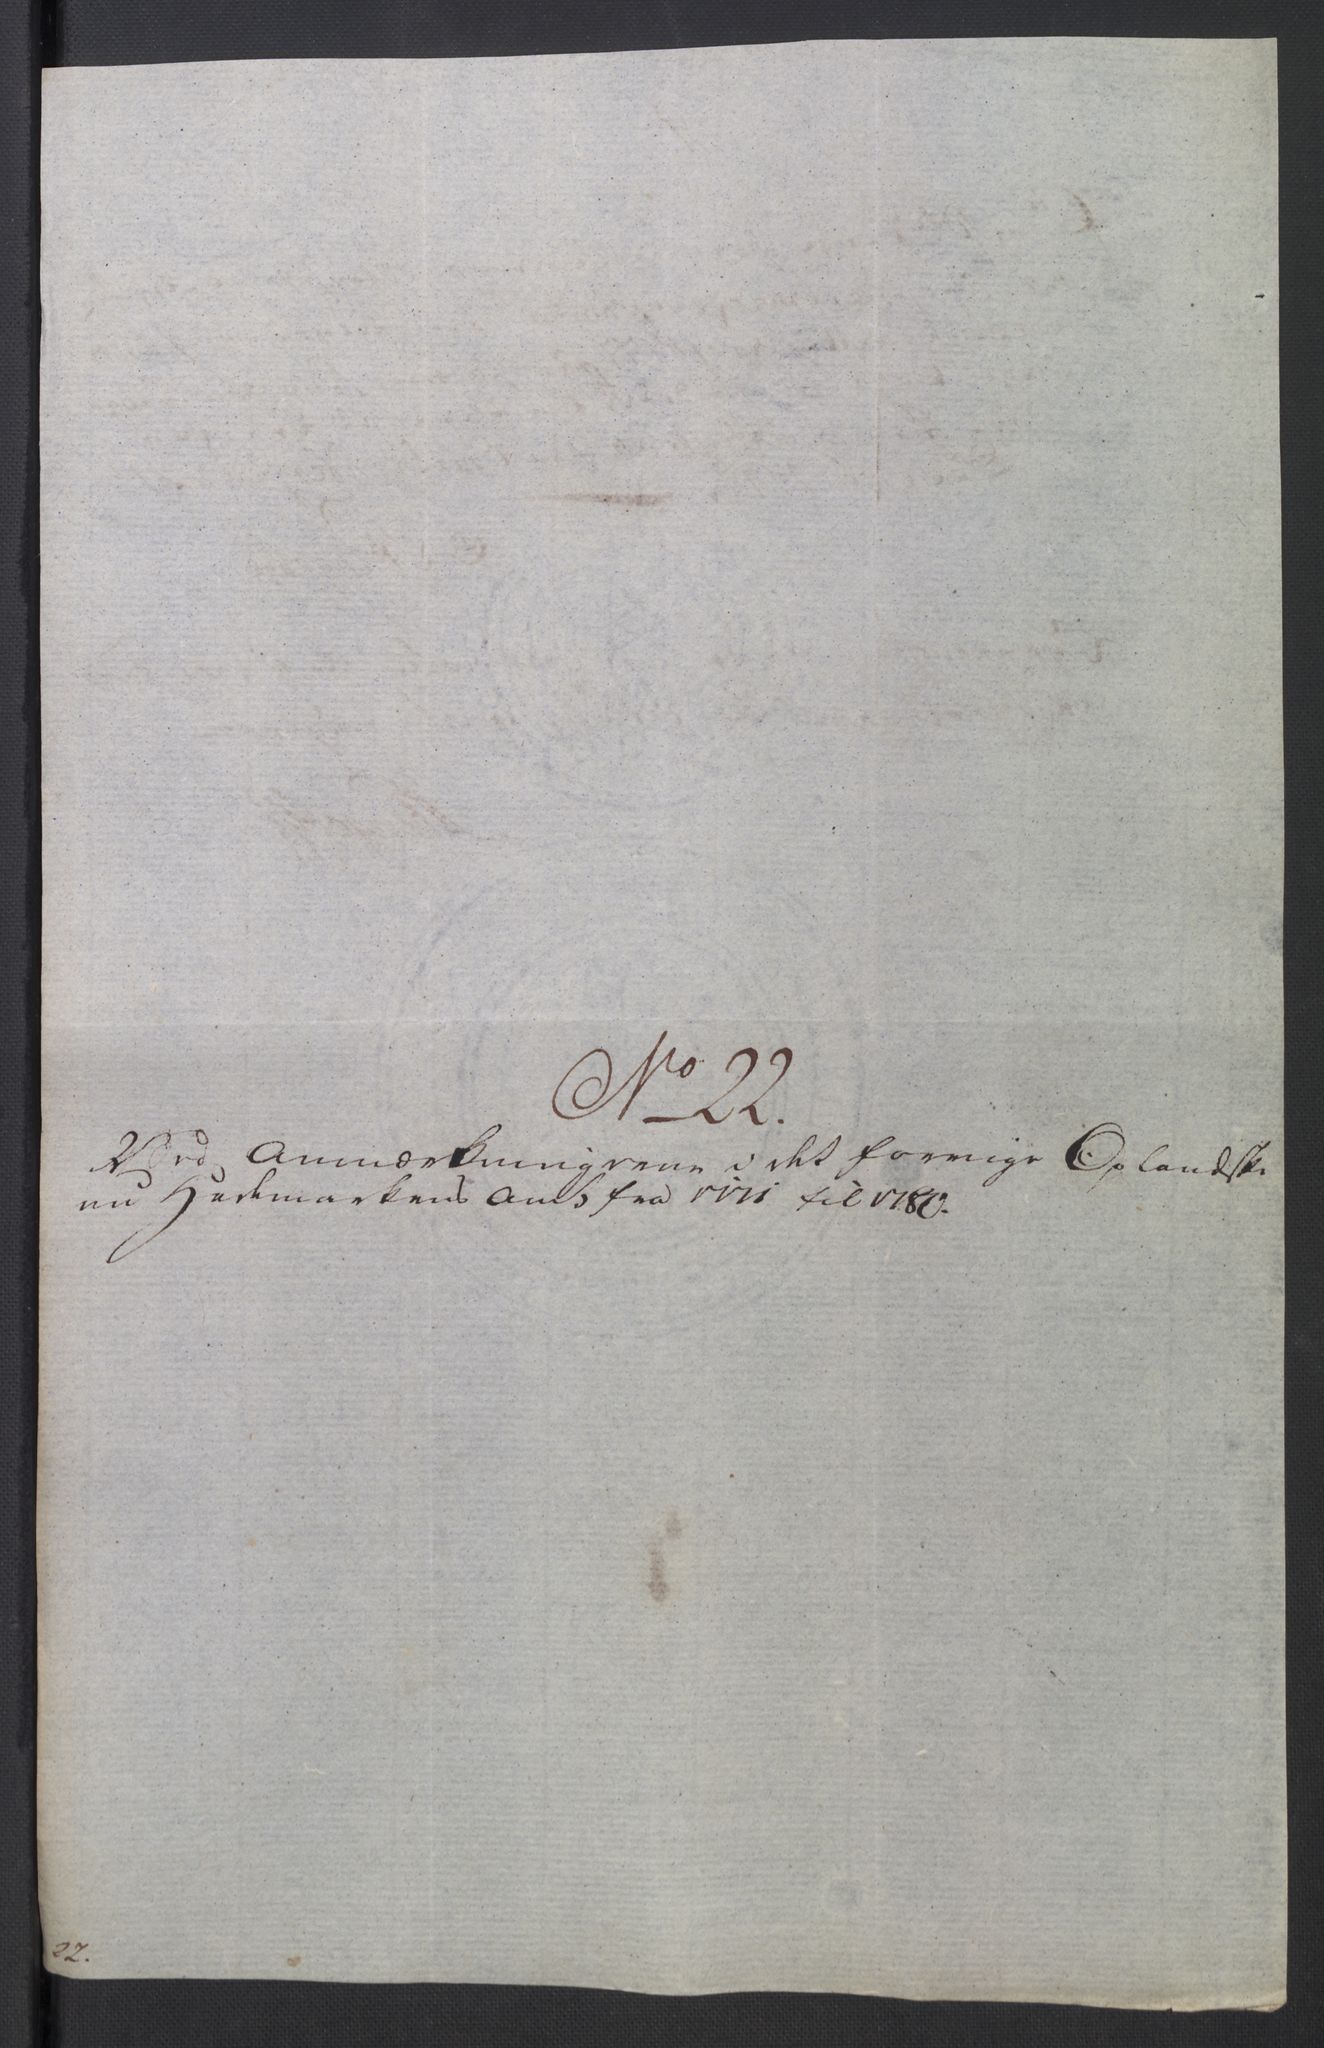 No 22.
Ved Anmærkningerne i det forrige Oplandske
nu Hedemarkens Amt fra 1771 til 1780.
22.